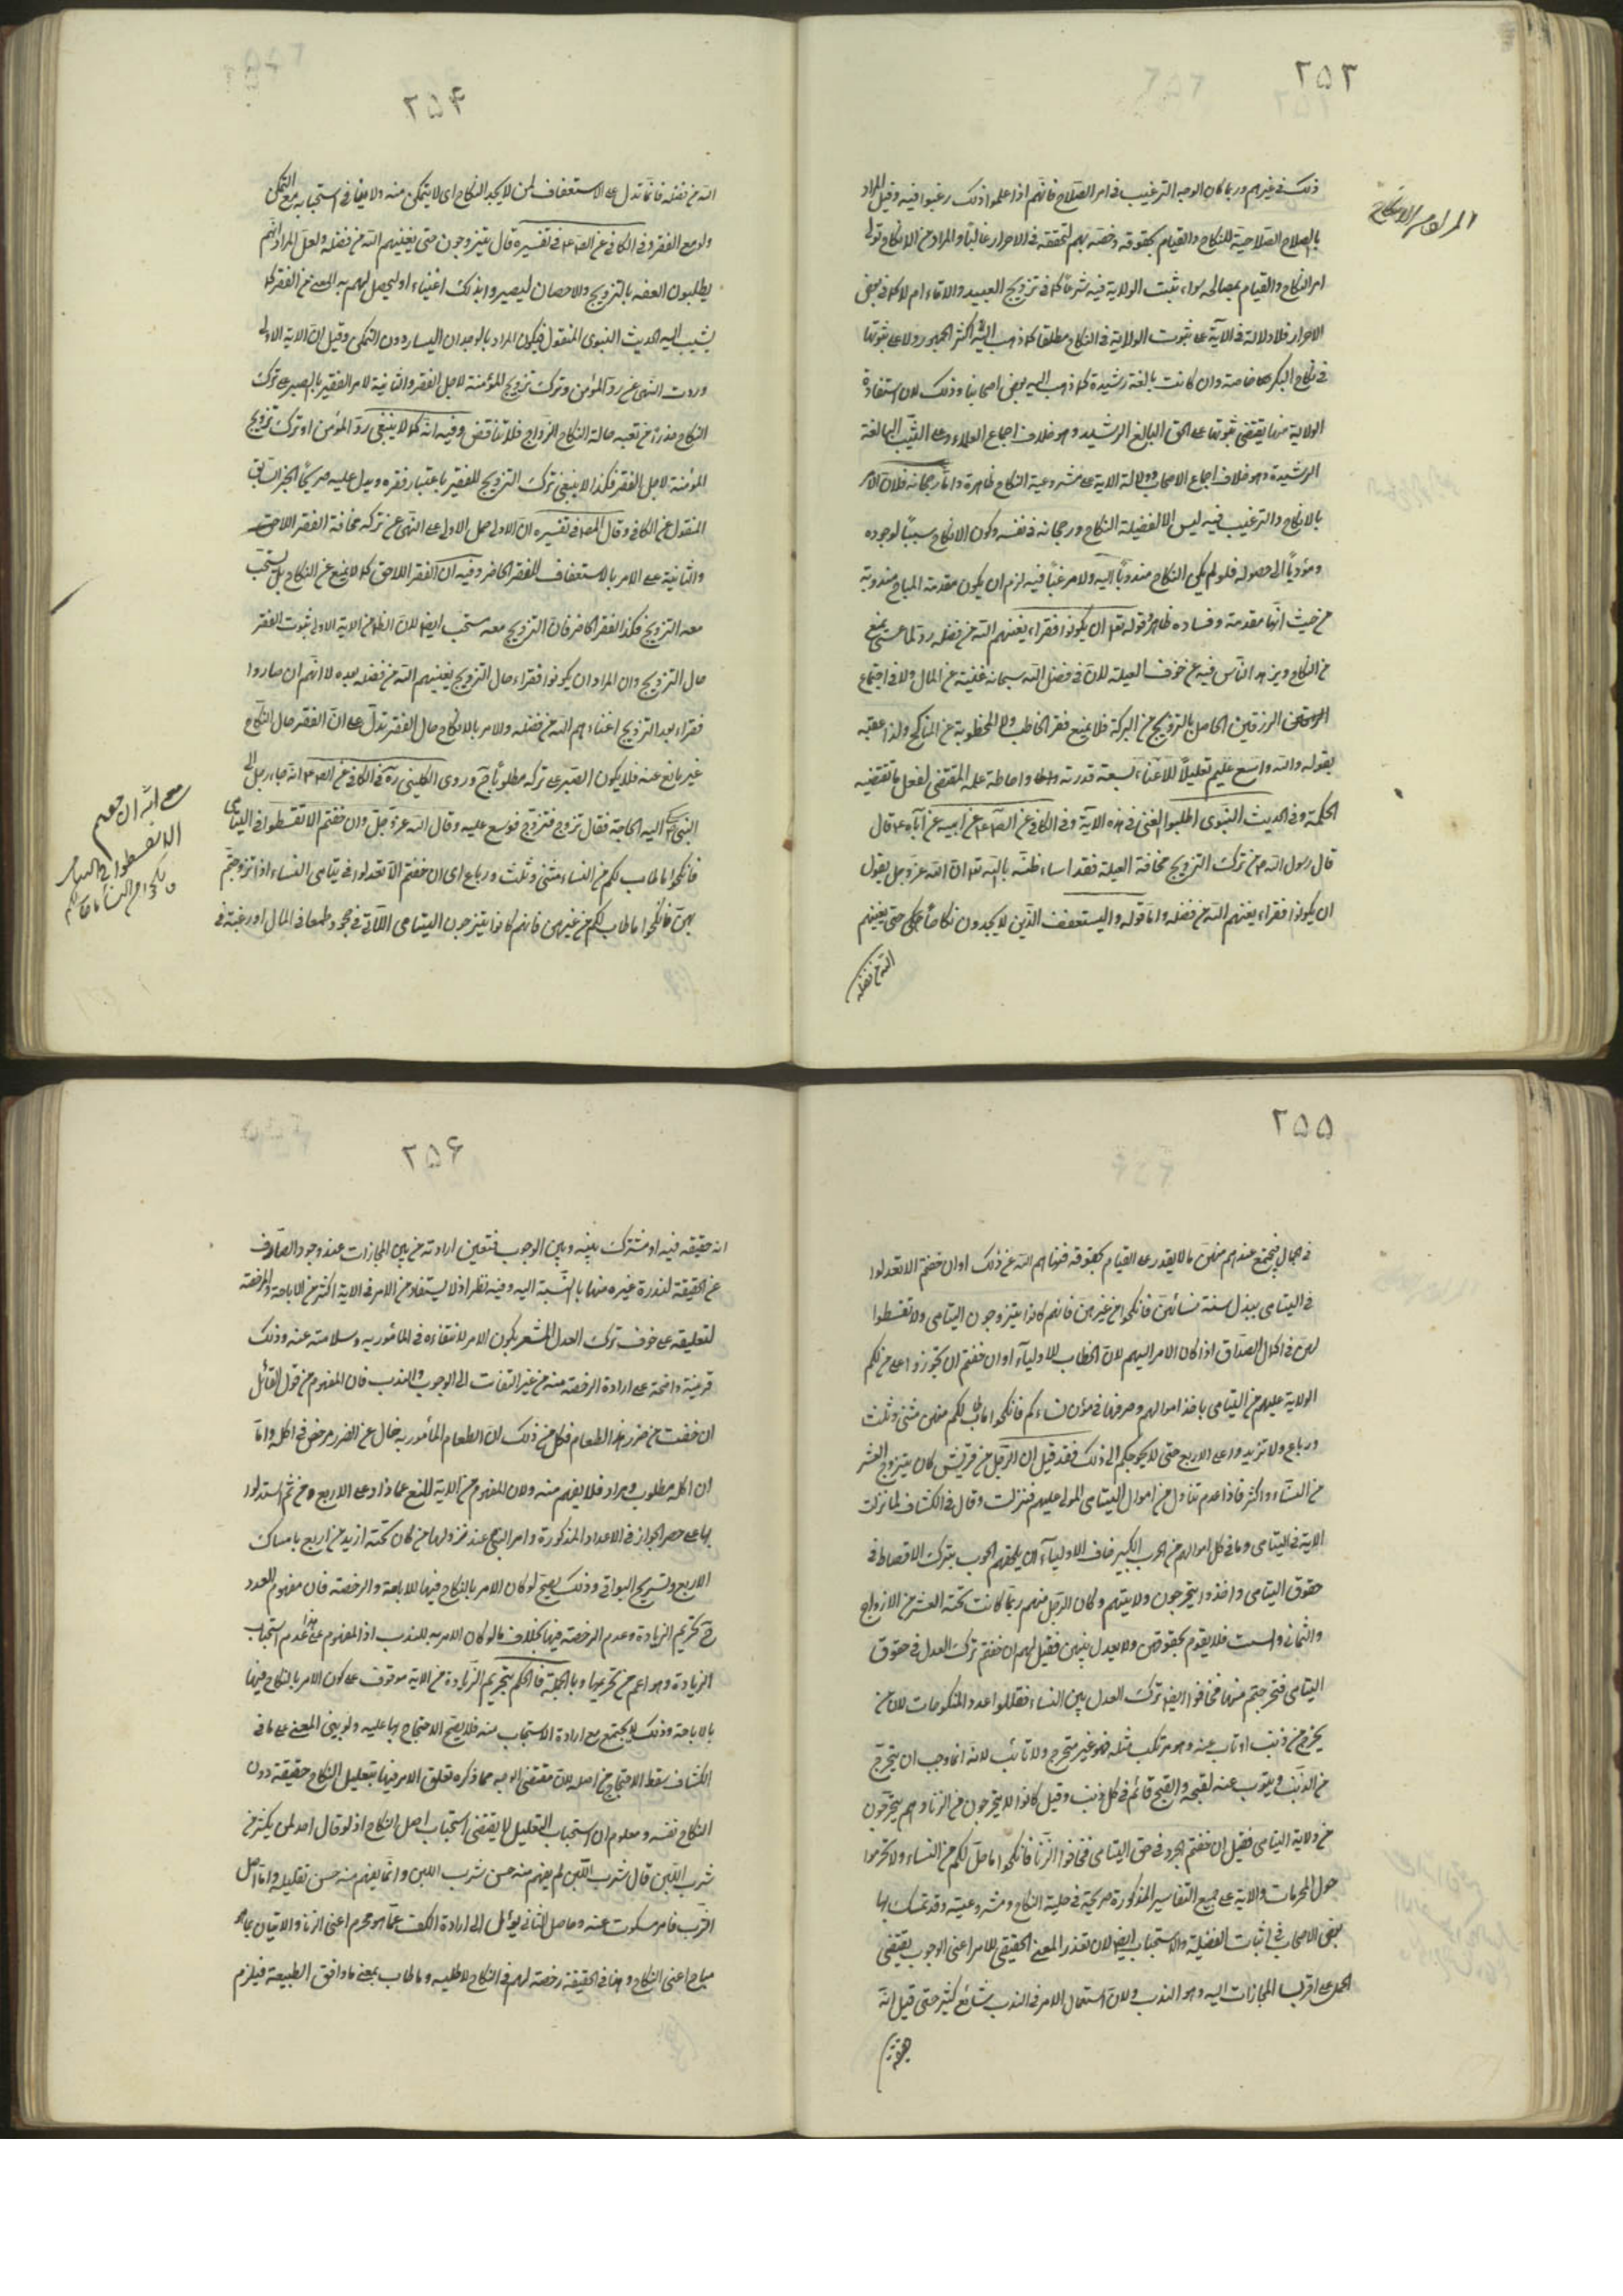 ٢٥٣
المراد من الانكاح
ذلك في غيرهم وربما كان الوجه الترغيب في امر الصلاح فانهم اذا علموا ذلك رغبوا فيه وقيل المراد
بالصلاح الصلاحية للنكاح والقيام بحقوقه وخصه بهم لتحققه في الاحرار غالبا والمراد من الانكاح تولى
امر النكاح والقيام بمصالحه سواء ثبت الولاية فيه شرعا كما في تزويج العبيد والاماء ام لا كما في بعض
الاحرار فلا دلالة في الآية على ثبوت الولاية في النكاح مطلقا كما ذهب اليه اكثر الجمهور ولا على ثبوتها
في نكاح البكر خاصة وان كانت بالغة رشيدة كما ذهب اليه بعض اصحابنا وذلك لان استفادة
الولاية منها يقتضى ثبوتها على الحق البالغ الرشيد وهو خلاف اجماع العلماء وعلى الثيب البالغة
الرشيدة وهو خلاف اجماع الاصحاب ودلالة الاية على مشروعية النكاح ظاهرة واما رجحانه فلان الامر
بالانكاح والترغيب فيه ليس الا لفضيلة النكاح ورجحانه في نفسه وكون الانكاح سببا لوجوده
ومؤديا الى حصوله فلو لم يكن النكاح مندوبا اليه ولا مرغبا فيه لزم ان يكون مقدمة المباح مندوبة
من حيث انها مقدمة وفساده ظاهر قوله تعل ان يكونوا فقراء يغنيهم الله من فضله رد لما عسى يمنع
من النكاح ويزهد الناس فيه عن خوف العيلة لان في فضل الله سبحانه غنية عن المال ولا في اجتماع
الرزقين الحاصل بالتزويج من البركة فلا يمنع فقر الخاطب والمخطوبة عن المناكح ولذا عقبه
بقوله والله واسع عليم تعليلا للاغناء لسعة قدرته واحاطة علمه المقتضى لفعل ما تقتضيه
الحكمة وفي الحديث النبوى اطلبوا الغنى في هذه الآية وفي الكافي عن الصم عن ابيه عن آبائه ع قال
قال رسول الله ص من ترك التزويج مخافة العيلة فقد اساء ظنه بالله تعا ان الله عز وجل يقول
ان يكونوا فقراء يغنهم الله من فضله واما قوله وليستعفف الذين لا يجدون نكاحا حتى يغنيهم
الله من فضله
٢٥٤
الله من فضله فانما تدل على الاستعفاف لمن لا يجد النكاح اى لا يتمكن منه ولا ينافي استحبابه مع التمكن
ولو مع الفقر وفي الكافي عن الص ع في تفسيره قال يتزوجون حتى يغنيهم الله من فضله ولعل المراد انهم
يطلبون العفة بالتزويج والاحصان ليصيروا بذلك اغنياء او ليحصل لهم به الغنى عن الفقر كما
يشيب اليه الحديث النبوى المنقول فيكون المراد بالوجدان اليسار دون التمكن وقيل ان الاية الاولى
وردت النهى عن رد المؤمن وترك تزويج المؤمنة لاجل الفقر والثانية لامر الفقير بالصبر على ترك
النكاح حذرا من تعبه حالة النكاح الزواج فلا تناقض وفيه انه كما لا ينبغى رد المؤمن او ترك تزويج
المؤمنة لاجل الفقر فكذا لا ينبغى ترك التزويج للفقير باعتبار فقره ويدل عليه صريحا الخبر السابق
المنقول عن الكافي وقال المص في تفسيره ان الاولى حمل الاولى على النهى عن تركه مخافة الفقر اللاحق
والثانية على الامر بالاستعفاف للفقر الحاضر وفيه ان الفقر اللاحق كما لا يمنع عن النكاح بل يستحب
معه التزويج فكذا الفقر الحاضر فان التزويج معه مستحب ايضا لان الظ من الاية الاولى ثبوت الفقر
حال التزويج وان المراد ان يكونوا فقراء حال التزويج يغنيهم الله من فضله بعده لا انهم ان صاروا
فقراء بعد التزويج اغناهم الله من فضله والامر بالانكاح حال الفقر تدل على ان الفقر حال النكاح
غير مانع عنه فلا يكون الصبر على تركه مطلوبا ح وروى الكلينى ره في الكافي عن الص ع انه جاء رجل الى
النبى ص اليه الحاجة فقال تزوج فتزوج فوسع عليه وقال الله عز وجل وان خفتم الا تقسطوا في اليتامى
فانكحوا ما طاب لكم من النساء مثنى وثلث ورباع اى ان خفتم الا تعدلوا في يتامى النساء اذا تزوجتم
بهن فانكحوا ما طاب لكم من غيرهن فانهم كانوا يتزوجون اليتامى اللاتى في حجور طمعا في المال او رغبة في
الا تقسطوا في اليتامى
فانكحوا من النساء ما طاب لكم
٢٥٥
في جمال فيجتمع عندهم منهن ما لا يقدر على القيام بحقوقه فنهاهم الله عن ذلك او ان خفتم الا تعدلوا
في اليتامى ببذل سنة نسائهن فانكحوا من غيرهن فانهم كانوا يتزوجون اليتامى ولا تقسطوا
لهن في اكمال الصداق اذا كان الامر اليهم لان الخطاب للاولياء او ان خفتم ان تجوروا على من لكم
الولاية عليهم من اليتامى باخذ اموالهم وصرفها في مؤن نسائكم فانكحوا ما طاب لكم منهن مثنى وثلث
ورباع ولا تزيدوا على الاربع حتى لا يحوجكم الى ذلك فقد قيل ان الرجل من قريش كان يتزوج العشر
من النساء واكثر فاذا عدم تناول من اموال اليتامى المولى عليهم فنزلت وقال في الكشاف لما نزلت
الاية في اليتامى وما في اكل اموالهم من الحوب الكبير خاف الاولياء ان يلحقهم الحوب بترك الاقساط في
حقوق اليتامى واخذوا يتحرجون ولايتهم وكان الرجل منهم ربما كانت تحته العشر من الازواج
والثمانى والست فلا يقوم بحقوقهن ولا يعدل بينهن فقيل لهم ان خفتم ترك العدل في حقوق
اليتامى فتحرجتم منها فخافوا ايضا ترك العدل بين النساء فقللوا عدد المنكوحات لان من
يحرج من ذنب او تاب عنه وهو مرتكب مثله فهو غير متحرج ولا تائب لانه انما وجب ان يتحرج
من الذنب ويتوب عنه لقبحه والقبح قائم في كل ذنب وقيل كانوا لا يتحرجون من الزنا وهم يتحرجون
من ولاية اليتامى فقيل ان خفتم الجور في حق اليتامى فخافوا الزنا فانكحوا ما حل لكم من النساء ولا تحوموا
حول المحرمات والاية على جميع التفاسير المذكورة صريحة في حلية النكاح ومشروعيته وقد تمسك بها
بعض الاصحاب في اثبات الفضيلة والاستحباب ايضا لان تعذر المعنى الحقيقى للامر اعنى الوجوب يقتضى
الحمل على اقرب المجازات اليه وهو الندب ولان استعمال الامر في الندب شائع كثير حتى قيل انه
٢٥٦
انه حقيقة فيه او مشترك بينه وبين الوجوب فتعين ارادته من بين المجازات عند وجود الصارف
عن الحقيقة لندرة غيره منها بالنسبة اليه وفيه نظر اذ لا يستفاد من الامر في الاية اكثر من الاباحة والرخصة
لتعليقه على خوف ترك العدل المشعر بكون الامر لانتفاءه في المأمور به وسلامته عنه وذلك
قرينة واضحة على ارادة الرخصة منه من غير التفات الى الوجوب والندب فان المفهوم من قول القائل
ان خفت من ضرر هذا الطعام فكل من ذلك ان الطعام المأمور به خال عن الضرر مرخص في اكله واما
ان اكله مطلوب ومراد فلا يفهم منه ولان المفهوم من الاية المنع عما زاد على الاربع ومن ثم استدلوا
بها على حصر الجواز في الاعداد المذكورة وامر النبى عند نزولها من كان تحته ازيد من اربع بامساك
الاربع وتسريح البواقى وذلك يصح لو كان الامر بالنكاح فيها للاباحة والرخصة فان مفهوم العدد
ح تحريم الزيادة وعدم الرخصة فيها بخلاف ما لو كان الامر به للندب اذ المفهوم على هذا عدم استحباب
الزيادة وهو اعم من تحريمها وبالجملة فالحكم بتحريم الزيادة من الاية موقوف على كون الامر بالنكاح فيها
بالاباحة وذلك لا يجتمع مع ارادة الاستحباب منه فلا يصح الاحتجاج بها عليه ولو بنى المعنى على ما في
الكشاف سقط الاحتجاج من اصله لان مقتضى الوجه مما ذكره تعلق الامر فيها بتقليل النكاح حقيقة دون
النكاح نفسه ومعلوم ان استحباب التقليل لا يقتضى استحباب اصل النكاح اذ لو قال احد لمن يكثر من
شرب اللبن قلل شرب اللبن لم يفهم منه حسن شرب اللبن وانما يفهم منه حسن تقليله واما اصل
الشرب فامر مسكوت عنه وحاصل الثانى يؤل الى ارادة الكف عما هو محرم اعنى الزنا والاتيان بما هو
مباح اعنى النكاح وهذا في الحقيقة رخصة لهم في النكاح لا طلبه وما طاب بمعنى ما وافق الطبيعة فيلزم